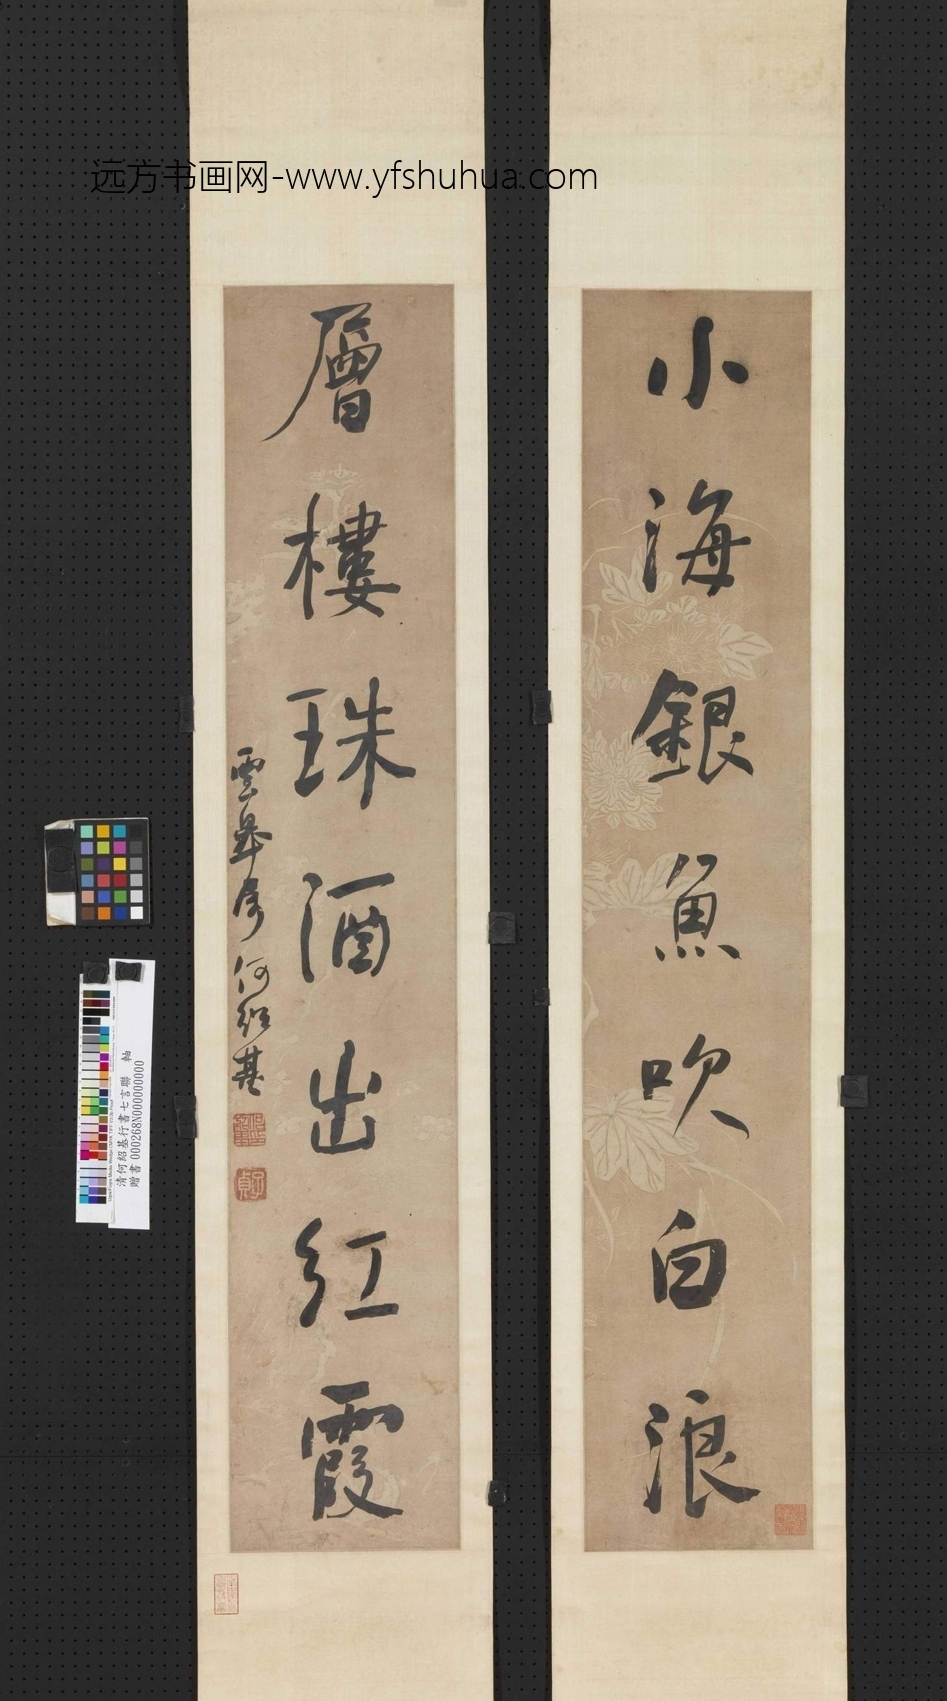 远方书画网-www.yfshuhua.com
小海銀魚吹白浪
層樓珠酒出紅霞
雲皋屬 何紹基
清何紹基行書七言聯 軸
贈書 000268N000000000